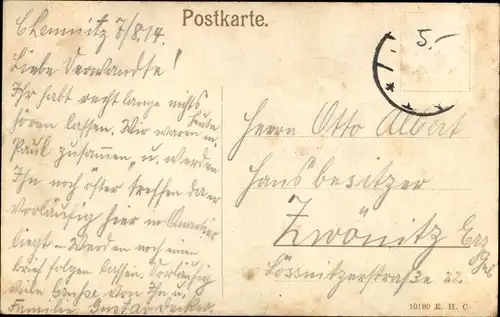 Postkarte.
5.-
Chemnitz 7/8.14.
Liebe Verwandte!
Ihr habt recht lange nichts
hören lassen. Wir waren heute m.
Paul zusammen u. werden
Ihn noch öfter treffen da er
vorläufig hier in Quartier
liegt - Werden noch einen
brief folgen lassen. Vorläufig
viele Grüße von Ihn u.
Familie Gustav
Herrn Otto Albert
Hausbesitzer
Zwönitz Erz
geb
Lössnitzerstraße 22
10180 E. H. C.